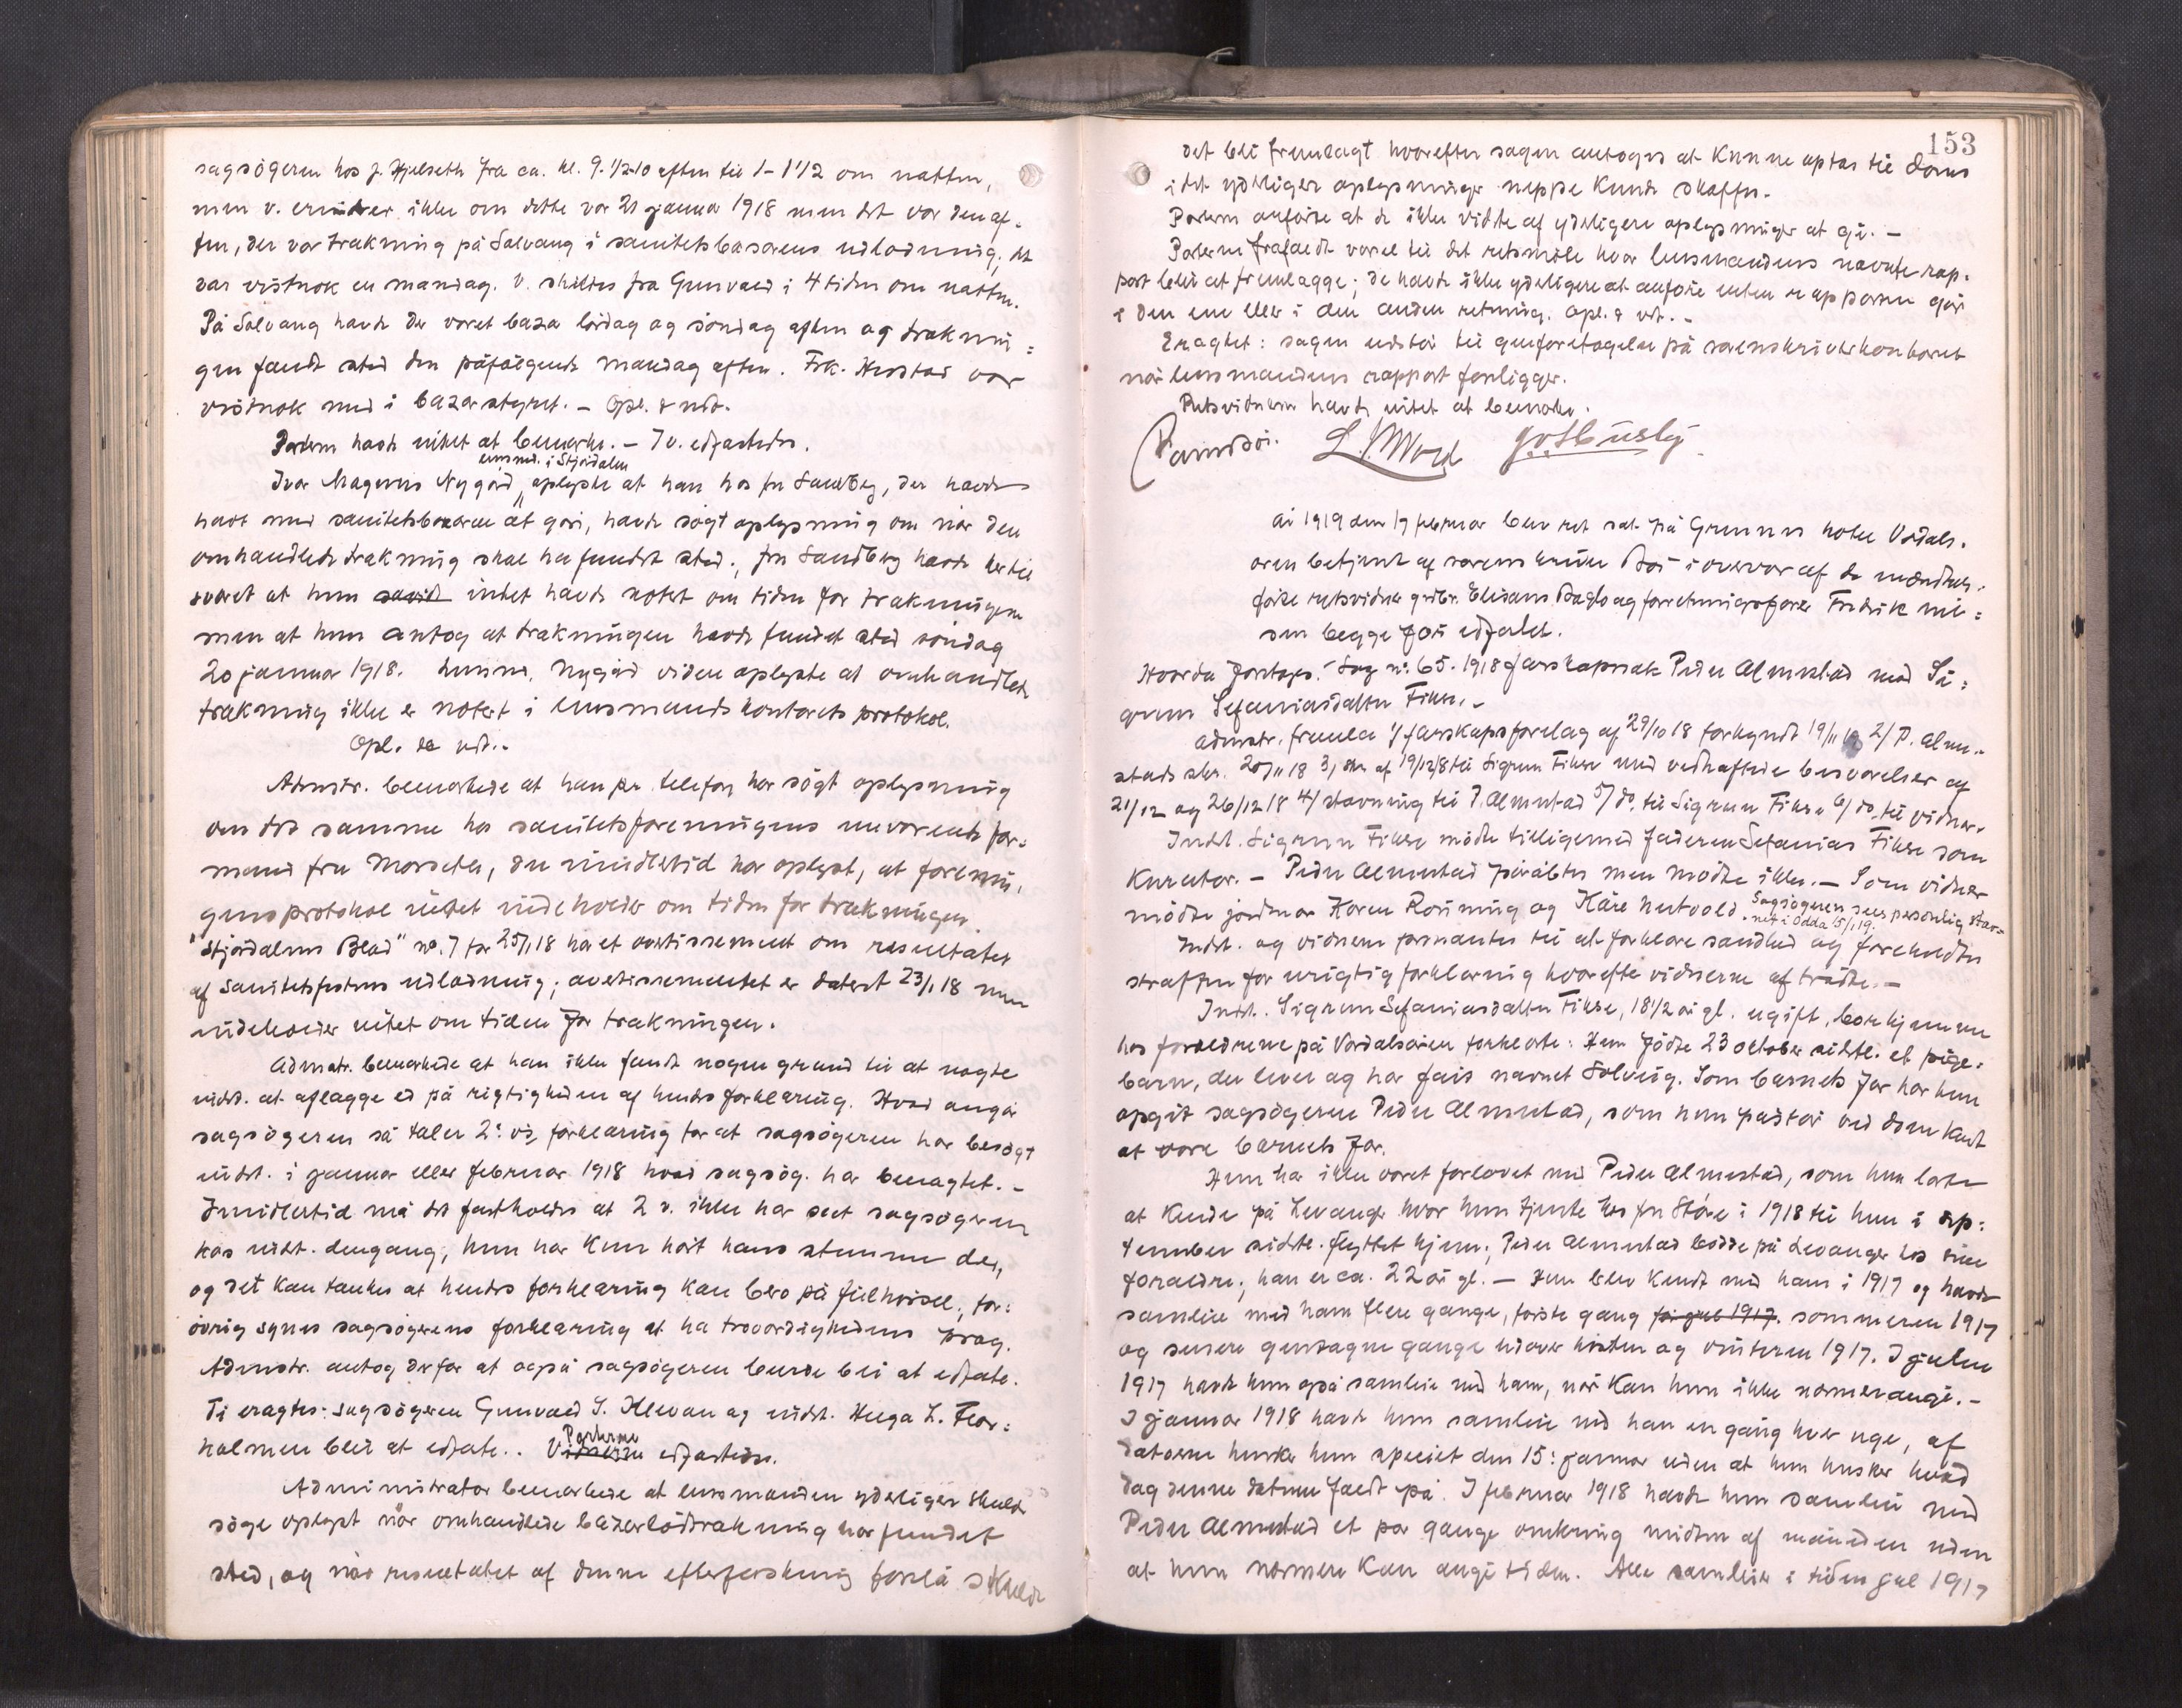 sagsögeren hos J. Hjelseth fra ca. kl. 9.1/2-10 aften til 1-1 1/2 om natten,
men v. erindrer ikke om dette var 21 januar 1918 men det var den af-
ten, der var trækning på Solvang i sanitetsbasarens udlodning; det
var vistnok en mandag. V. skiltes fra Gunvald i 4 tiden om natten.
På Solvang havde der været basar lördag og söndag aften og træknin=
gen fandt sted den påfölgende mandag aften. Frk. Hustad var
vistnok med i bazarstyret. - Opl. & vedt.
Parterne havde intet at bemærke. - 7 v. edfæstedes.
lensmd. i Stjördalen
Ivar Magnus Nygård, oplyste at han hos fru Sandberg, der havde
havt med sanitetsbazaren at göre, havde sögt oplysning om når den
omhandlede trækning skal ha fundet sted; fru Sandberg havde hertil
svaret at hun intet havde notert om tiden for trækningen
men at hun antog at trækningen havde fundet sted söndag
20 januar 1918. Lensmd. Nygård videre oplyste at omhandlede
trækning ikke er notert i lensmandskontorets protokol.
Opl. & vedt..
Admstr. bemærkede at han pr. telefon har sögt oplysning
om det samme hos sanitetsforeningens nuværende for=
mand fru Morseth, der imidlertid har oplyst, at forenin,
gens protokol intet indeholder om tiden for trækningen.
"Stjördalens Blad" no. 7 for 25/1 18 har et avertissement om resultatet
af Sanitetsfestens udlodning; avertissementet er datert 23/1 18 men
indeholder intet om tiden for trækningen.
Admstr. bemærkede at han ikke fandt nogen grund til at nægte
indst. at aflægge ed på rigtigheden af hendes forklaring. Hvad angår
sagsögeren så taler 2: vs forklaring for at sagsögeren har besögt
indst. i januar eller februar 1918 hvad sagsög. har benægtet. -
Imidlertid må det fastholdes at 2 v. ikke har seet sagsögeren
hos indst. dengang, hun har kun hört hans stemme der,
og det kan tænkes at hendes forklaring kan bero på feilhörsel; for:
övrig synes sagsögerens forklaring at ha troværdighedens præg.
Admstr. antog derfor at også sagsögeren burde bli at edfæste.
Ti eragtes: sagsögeren Gunvald S. Klevan og indst. Helga L. Flor:
holmen blir at edfæste.. Vidnerne Parterne edfæstedes.
Administrator bemærkede at lensmanden yderligere skulde
söge oplyst når omhandlede bazarlodtrækning har fundet
sted, og når resultatet af denne efterforskning forelå skulde
153
det bli fremlagt hvorefter sagen antoges at kunne optas til doms
idet yderligere oplysninger neppe kunde skaffes.
Parterne anförte at de ikke vidste af yderligere oplysninger at gi. -
Parterne frafaldt varsel til det retsmöte hvor lensmandens nævnte rap-
port blir at fremlægge; de havde ikke yderligere at anföre enten rapporten går
i den ene eller i den anden retning. Opl. & vedt. -
Eragtet: sagen udstår til genforetagelse på sorenskriverkontoret
når lensmandens rapport foreligger.
Retsvidnerne havde intet at bemærke.
L. J. Moxl
År 1919 den 17 februar blev ret sat på Grunns hotel Værdals-
ören betjent af sorenskriver Böi i overvær af de mændtal-
förte retsvidner gårdbr. Elisæus Dagslo og forretningsförer Fredrik Nil=
sen begge för edfæstet.
Hvorda foretoges: Sag no: 65. 1918 farskapssak Peder Almestad mod Si:
grun Sefaniasdatter Fikse. -
Admstr. fremla 1/ farskapsforelæg af 29/10 18 forkyndt 19/11 18 2/ P. Alm-
stads skr. 20/11 18 3/ skr. af 19/12 18 til Sigrun Fikse med vedhæftede besvarelser af
21/12 og 26/12 18 4/ stævning til P. Almestad 5/ do. til Sigrun Fikse 6/ do. til vidner.
Indst. Sigrun Fikse mödte tilligemed faderen Sefanias Fikse som
kurator. - Peder Almestad påråbtes men mödte ikke. - Som vidner
mödte jordmor Karen Rönning og Kåre Hutvold. Sagsögeren sees personlig stæv=
net i Odda 15/1 19.
Indst. og vidnerne formantes til at forklare sandhed og foreholdtes
straffen for urigtig forklaring hvorefter vidnerne aftrådte. -
Indst. Sigrun Sefaniasdatter Fikse, 18 1/2 år gl. ugift, bor hjemme
hos forældrene på Værdalsören forklarte: Hun födte 23 oktober sidstl. et pige-
barn, der lever og har fåt navnet Solveig. Som barnets far har hun
opgit sagsögeren Peder Almestad, som hun påstår ved dom kjent
at være barnets far.
Hun har ikke været forlovet med Peder Almestad, som hun lærte
at kjende på Levanger hvor hun tjente hos fru Störe i 1918 til hun i sep:
tember sidstl. flyttet hjem; Peder Almestad bodde på Levanger hos sine
forældre; han er ca. 22 år gl. - Hun blev kjendt med ham i 1917 og havde
samleie med ham flere gange, förste gang för jul 1917. sommeren 1917
og senere gjentagne gange udover hösten og vinteren 1917. I julen
1917 havde hun også samleie med ham, når kan hun ikke nærmere angi. -
I januar 1918 havde hun samleie med han en gang hver uge, af
datoerne husker hun specielt den 15: januar uden at hun husker hvad
dag denne datum faldt på. I februar 1918 havde hun samleie med
Peder Almestad et par gange omkring midten af måneden uden
at hun nærmere kan angi tiden. Alle samleier i tiden jul 1917